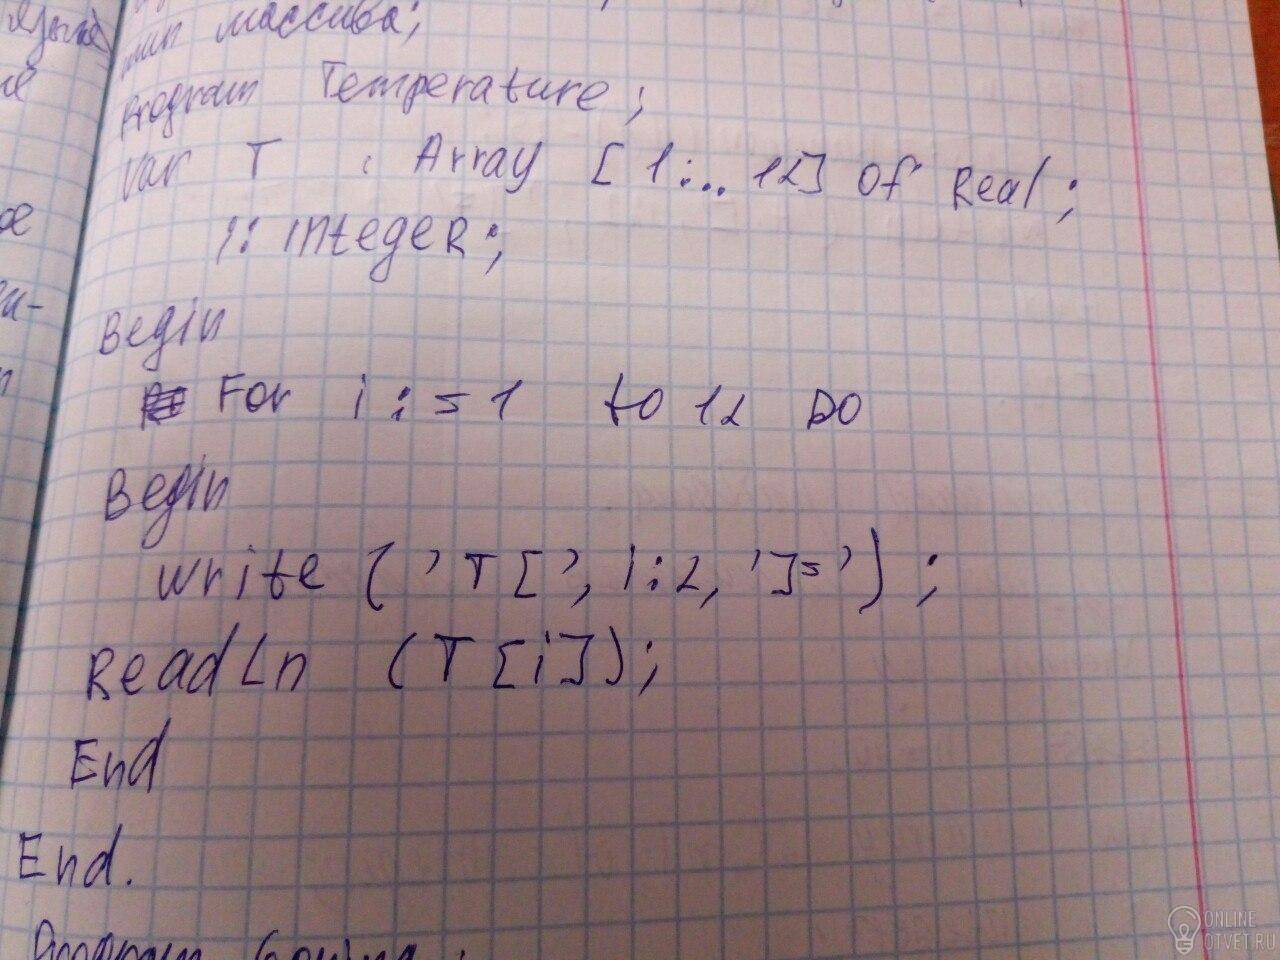 тип массива;
Program Temperature;
Var T : Array [1:.. 12] Of Real;
i: integeR;
Begin
For i:=1 to 12 DO
Begin
write ('T[', i:2, ']=');
ReadLn (T[i]);
End
End.
Program
ONLINE
OTVET.RU